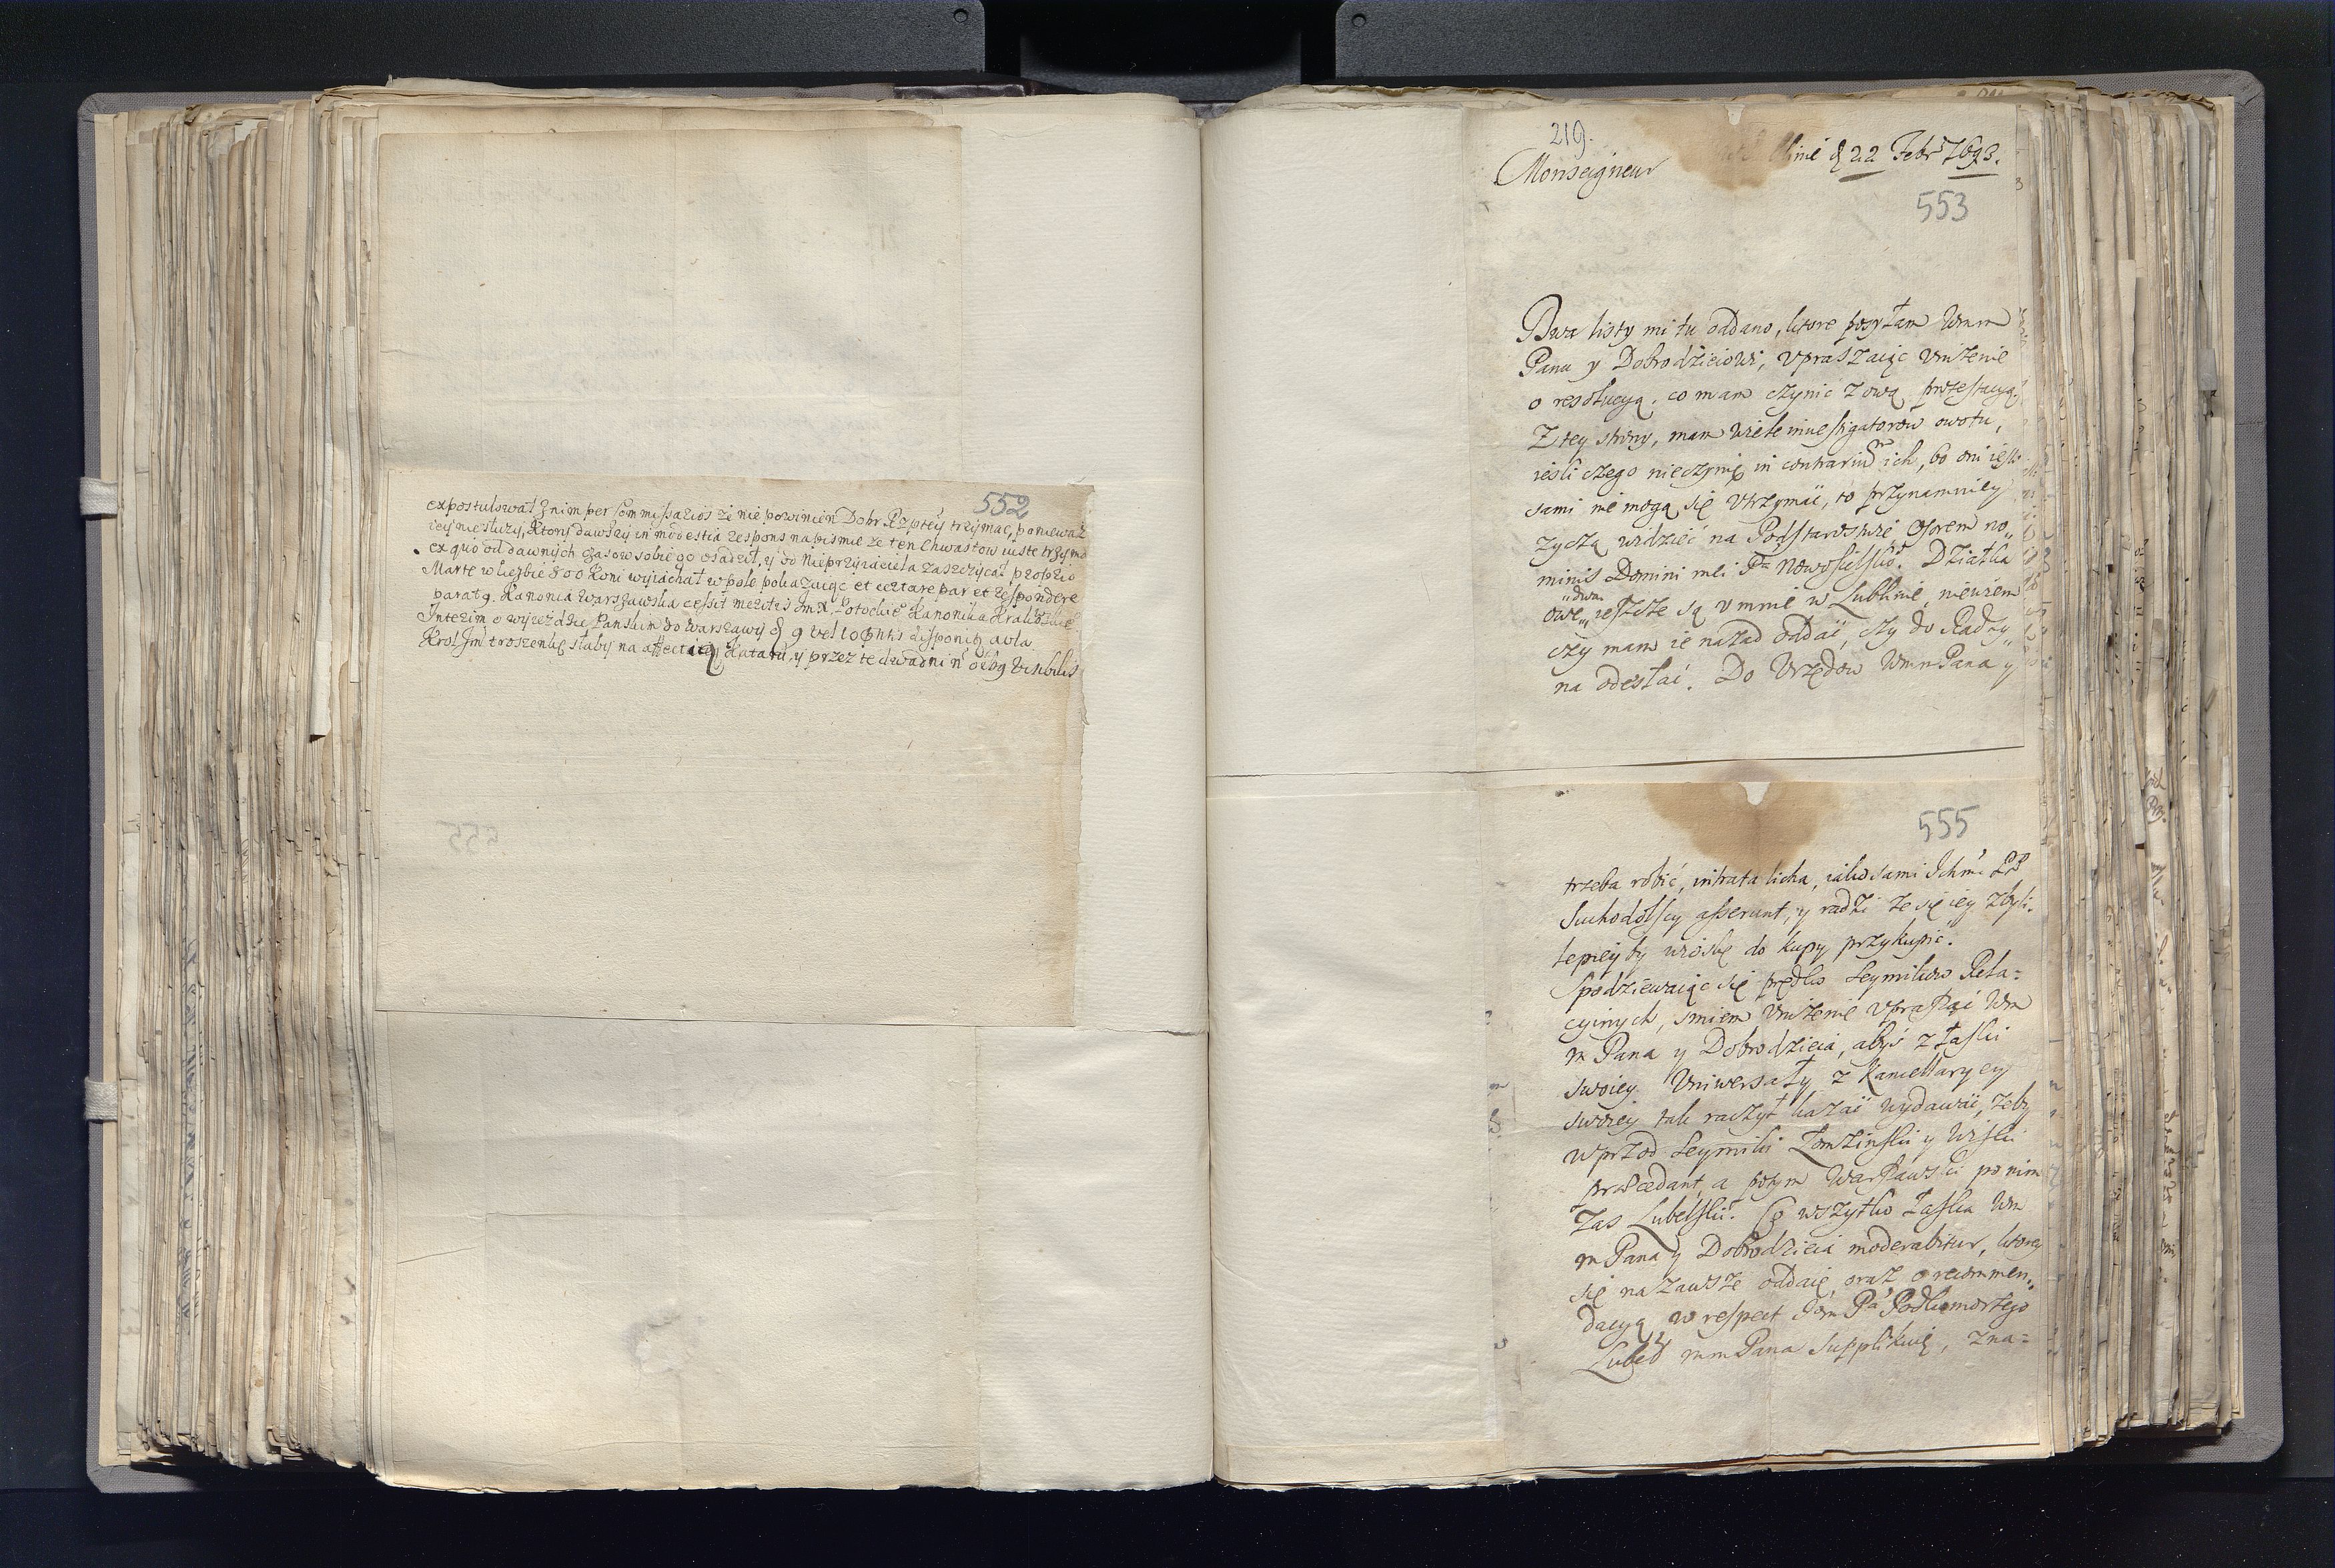 552
expostulował z nim per Commissarios że nie powinien Dobr Rzptey trzymac, ponieważ
iey nie służy, Ktory dawszy in modestia respons na pismie że ten Chwastow iuste trzyma
ex quo od dawnych czasow sobie go osadził, y od Nieprzyiaciela zaszczycał proprio
Marte w liczbie 800 Koni wyiachał w pole pokazuiąc et certare par et respondere
parat9. Kanonia Warszawska cessit meritis Jm X. Potockie° Kanonika Krakowskie°
Interim o wyiezdzie Pańskim do Warszawy d 9 vel 10 disponit aula
Krol Jm troszenkę słaby na affectią Kataru, y przez te dwa dni
219.
Monseigneur
d 22 Febr 1693.
553
Dwa listy mi tu oddano, ktore posyłam Wmm
Panu y Dobrodzieiowi, vpraszaiąc vniżenie
o resolucyą. co mam czynic z ową protestacyą,
Z tey strony, mam wiele investigatorow owotu,
iesli czego nieczynię in contrarium ich, bo oni iesli
sami nie mogą się vtrzymać, to przynamniey
zyczą widzieć na Podstarostwie Osorem no„
minis Domini mei Pa Nowosielskie°. Działka
owe„ „dwa ieszcze są v mnie w Lublinie, niewiem
czy mam ie nazad oddać, czy do Radzy„
na odesłać. Do Vrzędow WmmPana y
555
trzeba robić, intrata licha, iako sami Ichm PP
Suchodolscy asserunt, y radzi że się iey zbyli.
lepiey by wioskę do kupy przykupić.
Spodziewaiąc się prędko Seymikow Rela=
cyinych, smiem vniżenie vpraszać Wm
m Pana y Dobrodzieia, abyś z łaski
swoiey Vniwersały z Kancellaryey
swoiey tak raczył kazać wydawać, żeby
wprzod Seymiki Łomzinski y Wiski
praecedant, a potym Warszawski po nim
zas Lubelski. Co wszytko łaska Wm
m Pana y Dobrodzieia moderabitur, ktorey
się na zawsze oddaię, oraz o recommen„
dacyą w respect Jm Pa Podkomorzego
Lubel mm Pana supplikuię, zna=